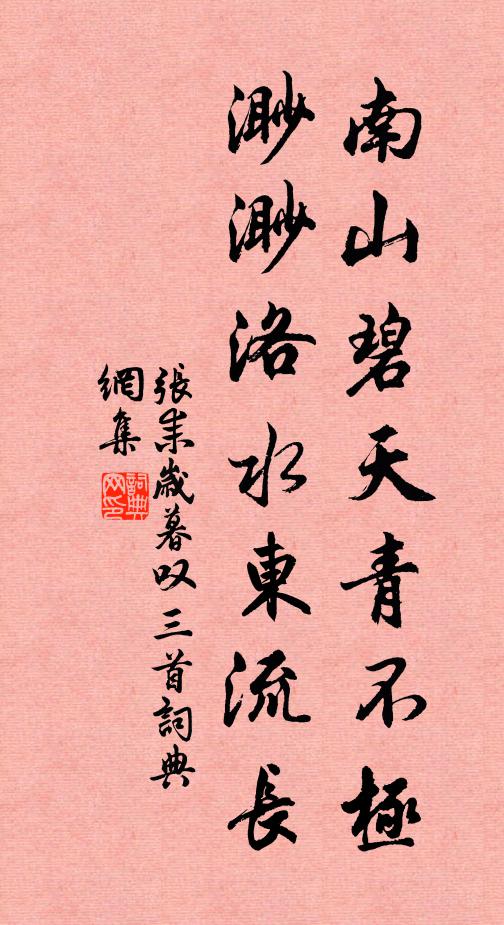 南山碧天青不極
渺渺洛水東流長
張耒歲暮叹三首詞典
網集
詞典
网印